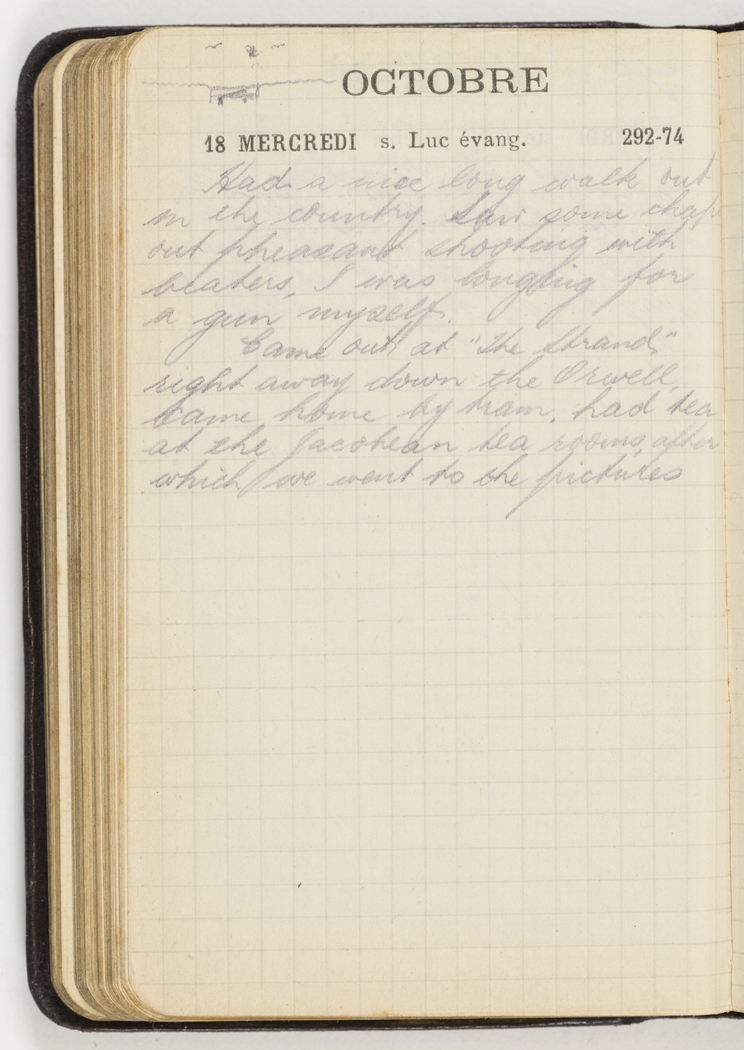 OCTOBRE
18 MERCREDI s. Luc évang. 292-74
Had a nice long walk out
in the country. Saw some chaps
out pheasant shooting with
beaters, I was longing for
a gun myself.
Came out at "The Strand"
right away down the Orwell,
Came home by tram, had tea
at the Jacobean tea rooms, after
which we went to the pictures